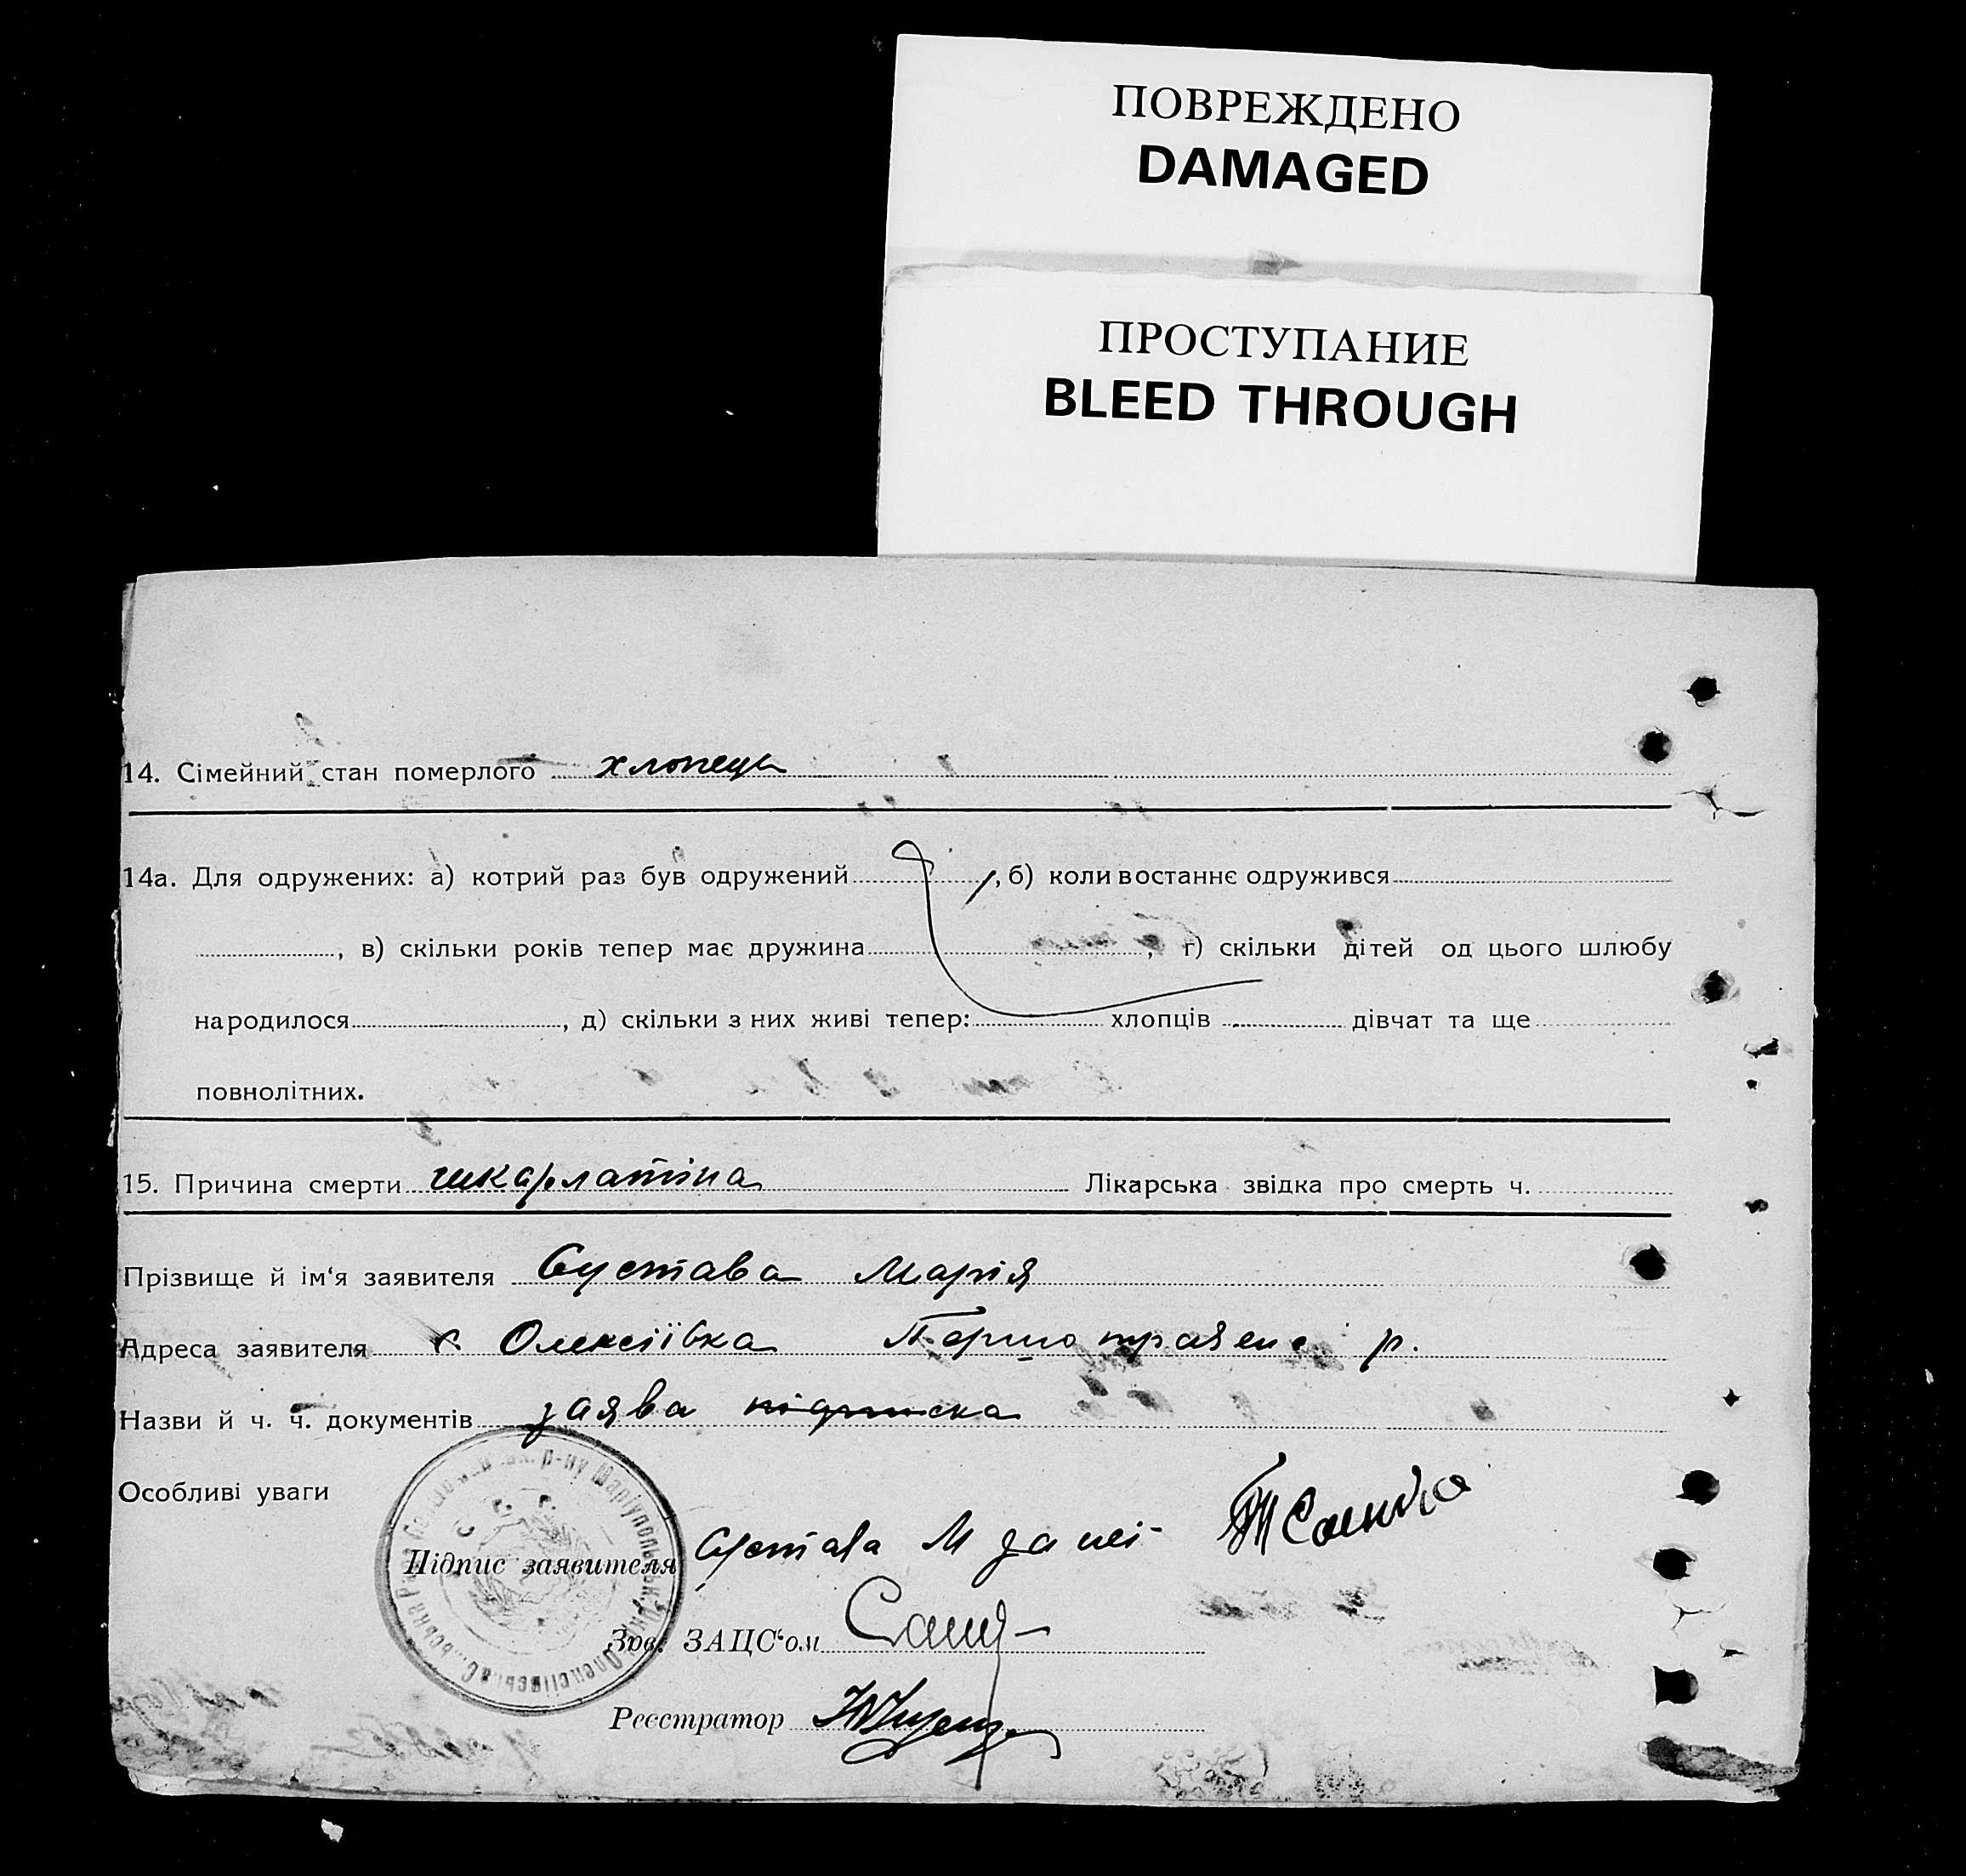 ПОВРЕЖДЕНО
DAMAGED
ПРОСТУПАНИЕ
BLEED THROUGH
14. Сімейний стан померлого хлопець
14а. Для одружених: а) котрий раз був одружений , б) коли востаннє одружився
, в) скільки років тепер має дружина , г) скільки дітей од цього шлюбу
народилося , д) скільки з них живі тепер: хлопців дівчат та ще
повнолітних.
15. Причина смерти шкарлатіна Лікарська звідка про смерть ч.
Прізвище й ім‘я заявителя Сустава Марія
Адреса заявителя с. Олексіївка р.
Назви й ч. ч. документів заява підписка
Особливі уваги
Підпис заявителя Сустава М
Зов. ЗАЦС‘ом
Реєстратор